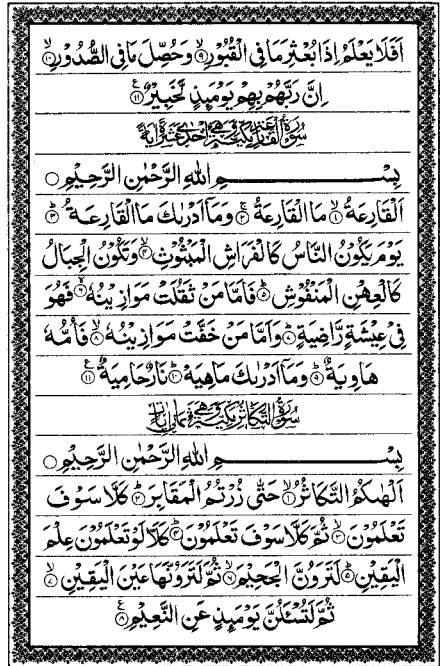 اَفَلَا يَعْلَمُ اِذَا بُعْثِرَ مَا فِي الْقُبُوْرِ ۙ﴿۹﴾ وَحُصِّلَ مَا فِي الصُّدُوْرِ ۙ﴿۱۰﴾
اِنَّ رَبَّهُمْ بِهِمْ يَوْمَئِذٍ لَّخَبِيْرٌ ﴿۱۱﴾
سُوْرَةُ الْقَارِعَةِ مَكِّيَّةٌ وَّهِيَ اِحْدٰى عَشْرَةَ اٰيَةً
بِسْمِ اللهِ الرَّحْمٰنِ الرَّحِيْمِ
اَلْقَارِعَةُ ۙ﴿۱﴾ مَا الْقَارِعَةُ ﴿۲﴾ وَمَآ اَدْرٰىكَ مَا الْقَارِعَةُ ﴿۳﴾
يَوْمَ يَكُوْنُ النَّاسُ كَالْفَرَاشِ الْمَبْثُوْثِ ۙ﴿۴﴾ وَتَكُوْنُ الْجِبَالُ
كَالْعِهْنِ الْمَنْفُوْشِ ﴿۵﴾ فَاَمَّا مَنْ ثَقُلَتْ مَوَازِيْنُهٗ ۙ﴿۶﴾ فَهُوَ
فِيْ عِيْشَةٍ رَّاضِيَةٍ ﴿۷﴾ وَاَمَّا مَنْ خَفَّتْ مَوَازِيْنُهٗ ۙ﴿۸﴾ فَاُمُّهٗ
هَاوِيَةٌ ﴿۹﴾ وَمَآ اَدْرٰىكَ مَاهِيَهْ ﴿۱۰﴾ نَارٌ حَامِيَةٌ ﴿۱۱﴾
سُوْرَةُ التَّكَاثُرِ مَكِّيَّةٌ وَّهِيَ ثَمَانِيْ اٰيَاتٍ
بِسْمِ اللهِ الرَّحْمٰنِ الرَّحِيْمِ
اَلْهٰىكُمُ التَّكَاثُرُ ۙ﴿۱﴾ حَتّٰى زُرْتُمُ الْمَقَابِرَ ﴿۲﴾ كَلَّا سَوْفَ
تَعْلَمُوْنَ ۙ﴿۳﴾ ثُمَّ كَلَّا سَوْفَ تَعْلَمُوْنَ ﴿۴﴾ كَلَّا لَوْ تَعْلَمُوْنَ عِلْمَ
الْيَقِيْنِ ﴿۵﴾ لَتَرَوُنَّ الْجَحِيْمَ ۙ﴿۶﴾ ثُمَّ لَتَرَوُنَّهَا عَيْنَ الْيَقِيْنِ ۙ﴿۷﴾
ثُمَّ لَتُسْئَلُنَّ يَوْمَئِذٍ عَنِ النَّعِيْمِ ﴿۸﴾